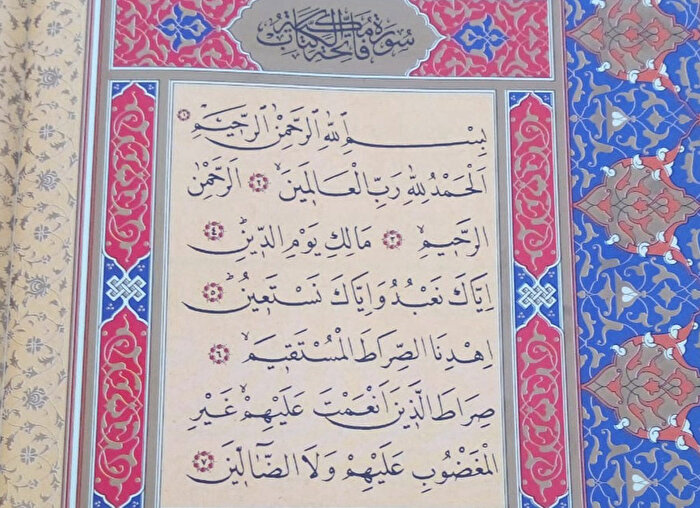 سُورَةُ فَاتِحَةِ الْكِتَابِ مَكِّيَّةٌ
بِسْمِ اللهِ الرَّحْمٰنِ الرَّحِيمِ ١
اَلْحَمْدُ لِلّٰهِ رَبِّ الْعَالَمِينَۙ ٢ اَلرَّحْمٰنِ
الرَّحِيمِۙ ٣ مَالِكِ يَوْمِ الدِّينِۜ ٤
اِيَّاكَ نَعْبُدُ وَاِيَّاكَ نَسْتَعِينُۜ ٥
اِهْدِنَا الصِّرَاطَ الْمُسْتَقِيمَۙ ٦
صِرَاطَ الَّذِينَ اَنْعَمْتَ عَلَيْهِمْۙ غَيْرِ
الْمَغْضُوبِ عَلَيْهِمْ وَلَا الضَّٓالِّينَ ٧